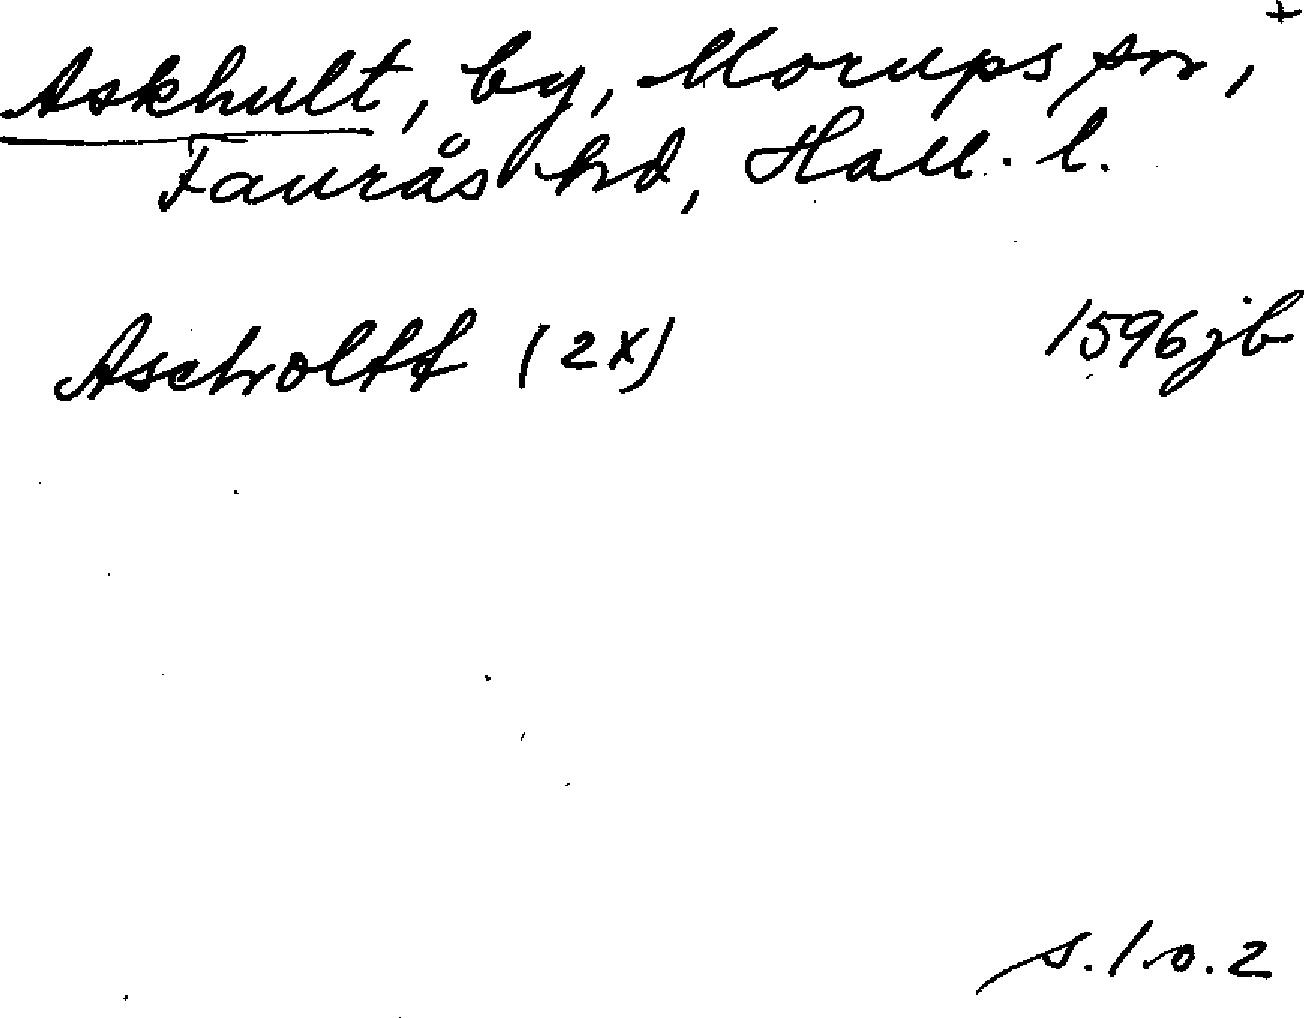 +
Askhult, by, Morups sn,
Faurås hd, Hall. l.
Ascholtt (2x) 1596 jb
s. 1 o. 2